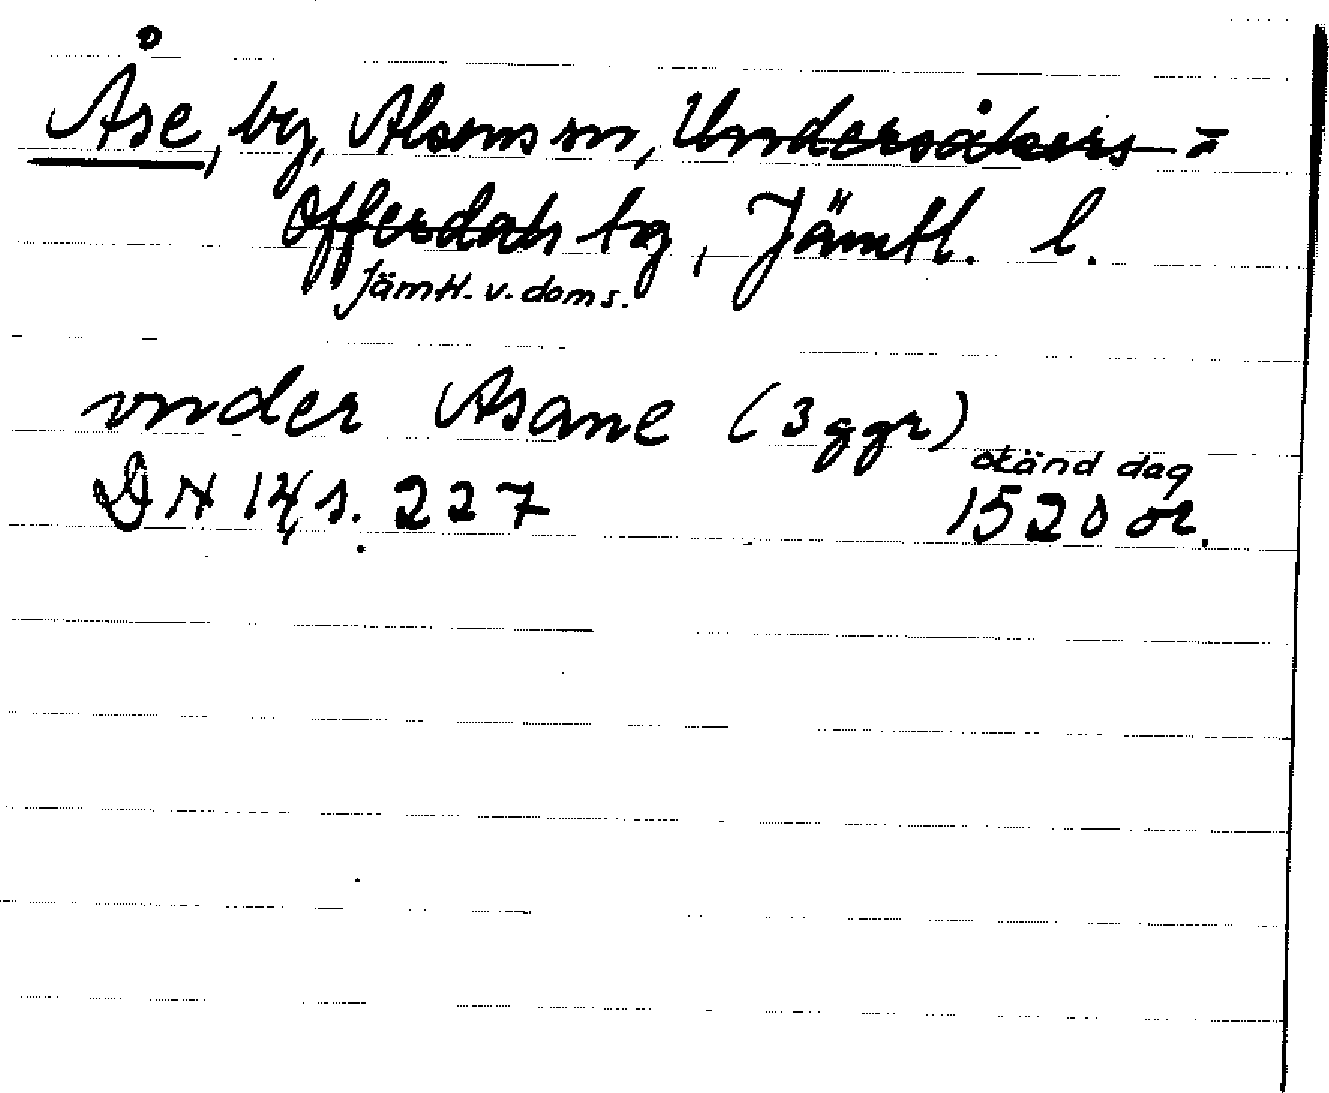 Åse, by, Alsens sn, Undersåkers-
Offerdals tg, Jämtl. l.
Jämtl. v. doms.
vnder Asane (3 ggr)
okänd dag
DN 14, s. 227 1520 or.